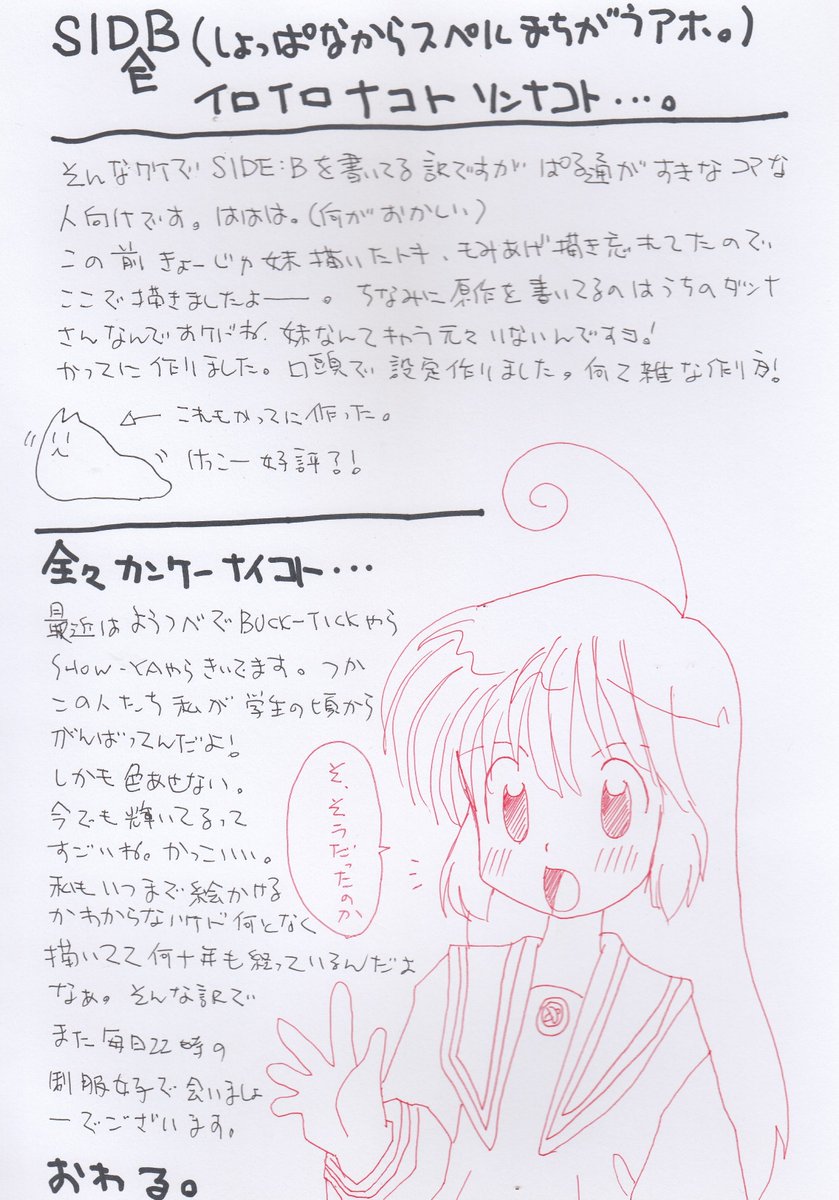 SIDB(しょっぱなからスペルまちがうアホ。)
E
イロイロナコト ソンナコト・・・。
そんなワケで SIDE:Bを書いてる訳ですが ぱる通がすきなコアな
人向けです。ははは。(何がおかしい)
この前 きょーじゅ妹 描いたトキ、もみあげ描き忘れてたので
ここで描きましたよー――。ちなみに原作を書いてるのはうちのダンナ
さんなんですケドね、妹なんてキャラ元々いないんですヨ!
かってに作りました。口頭で設定作りました。何て雑な作り方!
これもかってに作った。
けっこー好評了!
全々カンケーナイコト・・・
最近は ようつべで BUCK-TICKやら
SHOW-YAやら きいてます。つか
この人たち私が学生の頃から
がんばってんだよ!
しかも色あせない。
今でも輝いてるって
すごいね。かっこいい。
私もいつまで絵かける
かわからないけど何となく
描いてて何十年も経っているんだよ
なぁ。そんな訳で
また毎日22時の
制服女子で会いましょ
ーでございます。
おわる。
そ、そうだったのか